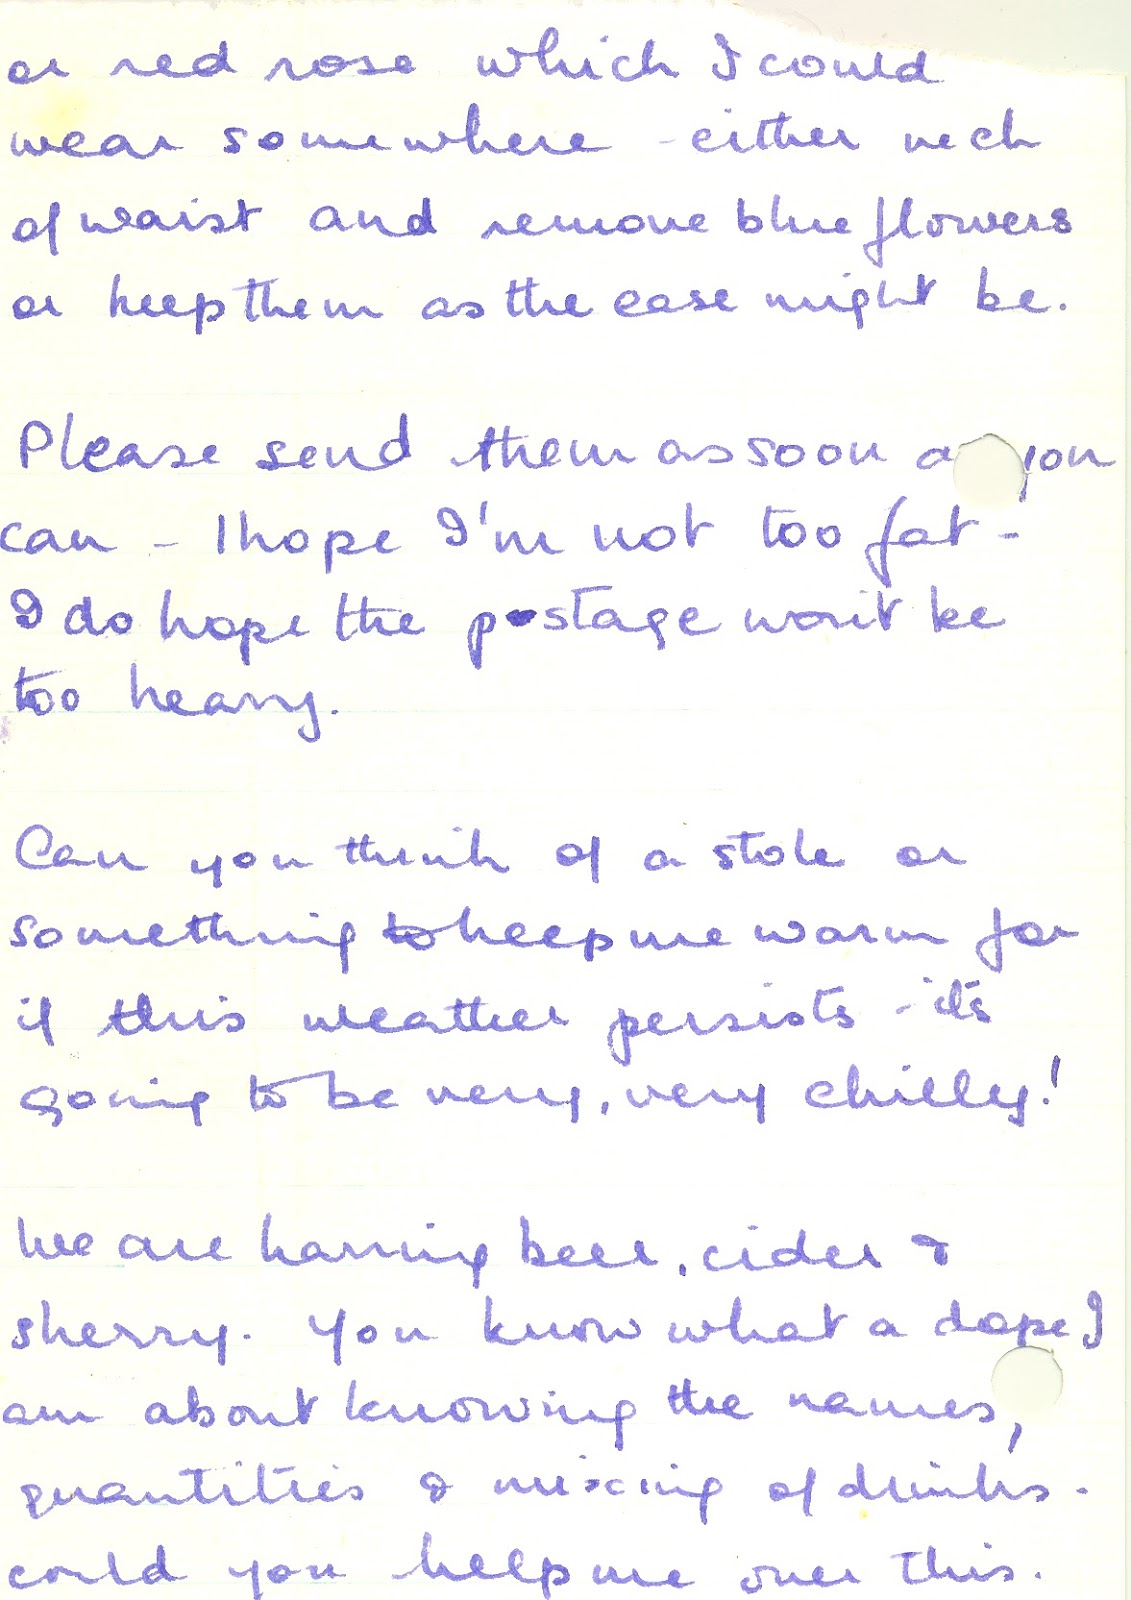 or red rose which I could
wear somewhere - either neck
of waist and remove blue flowers
or keep them as the case might be.
Please send them as soon a you
can - I hope I'm not too fat -
I do hope the postage won't be
too heavy.
Can you think of a stole or
something to keep me warm for
if this weather persists - it's
going to be very, very chilly!
We are having beer, cider &
sherry. You know what a dope I
am about knowing the names,
quantities & mixing of drinks -
could you help me over this.